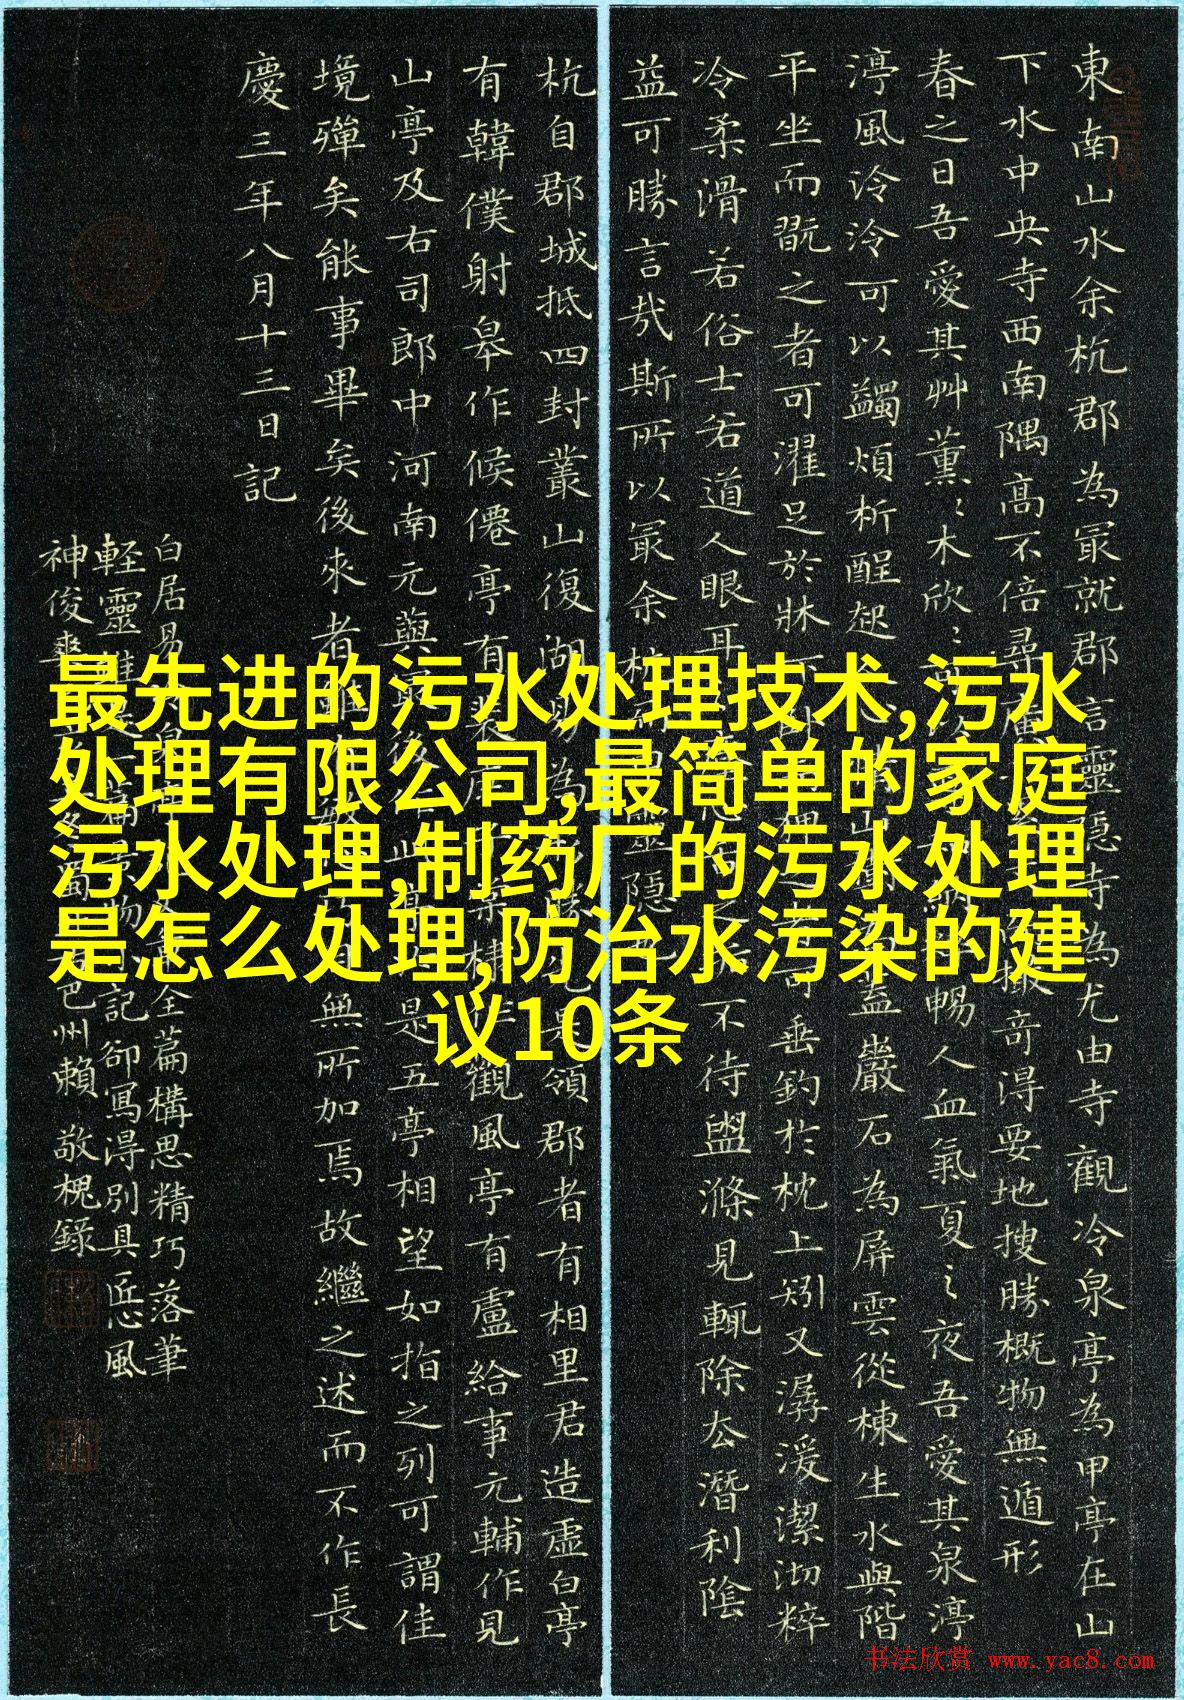 東南山水余杭郡為冣就郡言靈隱寺為尤由寺觀冷泉亭為甲亭在山
下水中央寺西南隅高不倍尋廣撮竒淂要地搜勝概物無遁形
春之日吾愛其艸薰〻木欣〻可暢人血氣夏之夜吾愛其泉渟
渟風泠泠可以蠲煩析酲起山盖巖石為屏雲從棟生水與階
平坐而翫之者可濯足於牀下可垂釣於枕上矧又潺湲潔沏粹
冷柔滑若俗士若道人眼耳不待盥滌見輒除去潛利陰
益可勝言㢤斯所以冣余杭靈隱
杭自郡城抵四封叢山復湖易為是領郡者有相里君造虛白亭
有韓僕射皋作候僊亭有裴棣作觀風亭有盧給事元輔作見
山亭及右司郎中河南元藇最後此是五亭相望如指之列可謂佳
境殫矣能事畢矣後來者無所加焉故繼之述而不作長
慶三年八月十三日記
白居易全篇構思精巧落筆
軽靈物記卻寫淂別具匠心風
神俊爽巴州賴敬槐錄
最先进的污水处理技术,污水
处理有限公司,最简单的家庭
污水处理,制药厂的污水处理
是怎么处理,防治水污染的建
议10条
书法欣赏 www.yac8.com